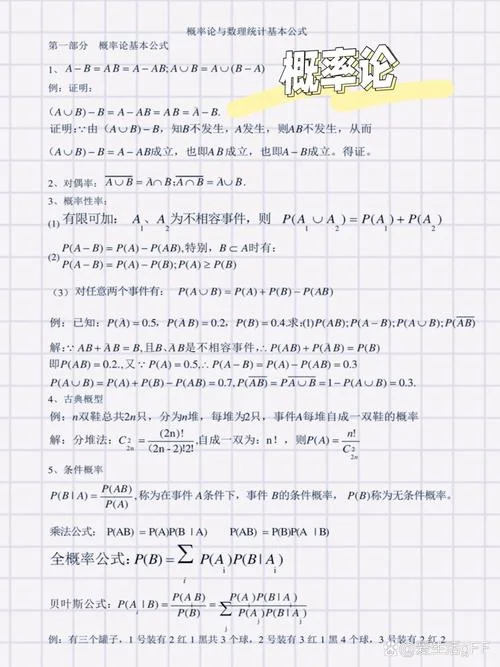 概率论与数理统计基本公式
第一部分 概率论基本公式
概率论
1、A-B=AB=A-AB;A∪B=A∪(B-A)
例：证明：
(A∪B)-B=A-AB=AB=A-B.
证明:∵由(A∪B)-B，知B不发生，A发生，则AB不发生，从而
(A∪B)-B=A-AB成立，也即AB成立，也即A-B成立。得证。
2、对偶率：\overline{A∪B}=A∩B;\overline{A∩B}=A∪B.
3、概率性率：
(1) 有限可加：A₁、A₂为不相容事件，则 P(A₁∪A₂)=P(A₁)+P(A₂)
(2) P(A-B)=P(A)-P(AB),特别，B⊂A时有：
P(A-B)=P(A)-P(B);P(A)≥P(B)
(3) 对任意两个事件有： P(A∪B)=P(A)+P(B)-P(AB)
例：已知：P(A)=0.5，P(AB)=0.2，P(B)=0.4.求:(1)P(AB);P(A-B);P(A∪B);P(\overline{AB})
解:∵AB+AB=B,且B、AB是不相容事件,∴P(AB)+P(AB)=P(B)
即P(AB)=0.2.,又∵P(A)=0.5,∴P(A-B)=P(A)-P(AB)=0.3
P(A∪B)=P(A)+P(B)-P(AB)=0.7,P(\overline{AB})=P\overline{A∪B}=1-P(A∪B)=0.3.
4、古典概型
例：n双鞋总共2n只，分为n堆，每堆为2只，事件A每堆自成一双鞋的概率
解：分堆法：C_{2n}^2=(2n)!/(2n-2)!2!,自成一双为：n！，则P(A)=n!/C_{2n}^2
5、条件概率
P(B|A)=P(AB)/P(A),称为在事件A条件下，事件B的条件概率，P(B)称为无条件概率。
乘法公式：P(AB)=P(A)P(B|A) P(AB)=P(B)P(A|B)
全概率公式:P(B)=∑ᵢP(Aᵢ)P(B|Aᵢ)
贝叶斯公式:P(Aᵢ|B)=P(AᵢB)/P(B)=P(Aᵢ)P(B|Aᵢ)/∑ⱼP(Aⱼ)P(B|Aⱼ)
例：有三个罐子，1号装有2红1黑共3个球，2号装有3红1黑4个球，3号装有2红